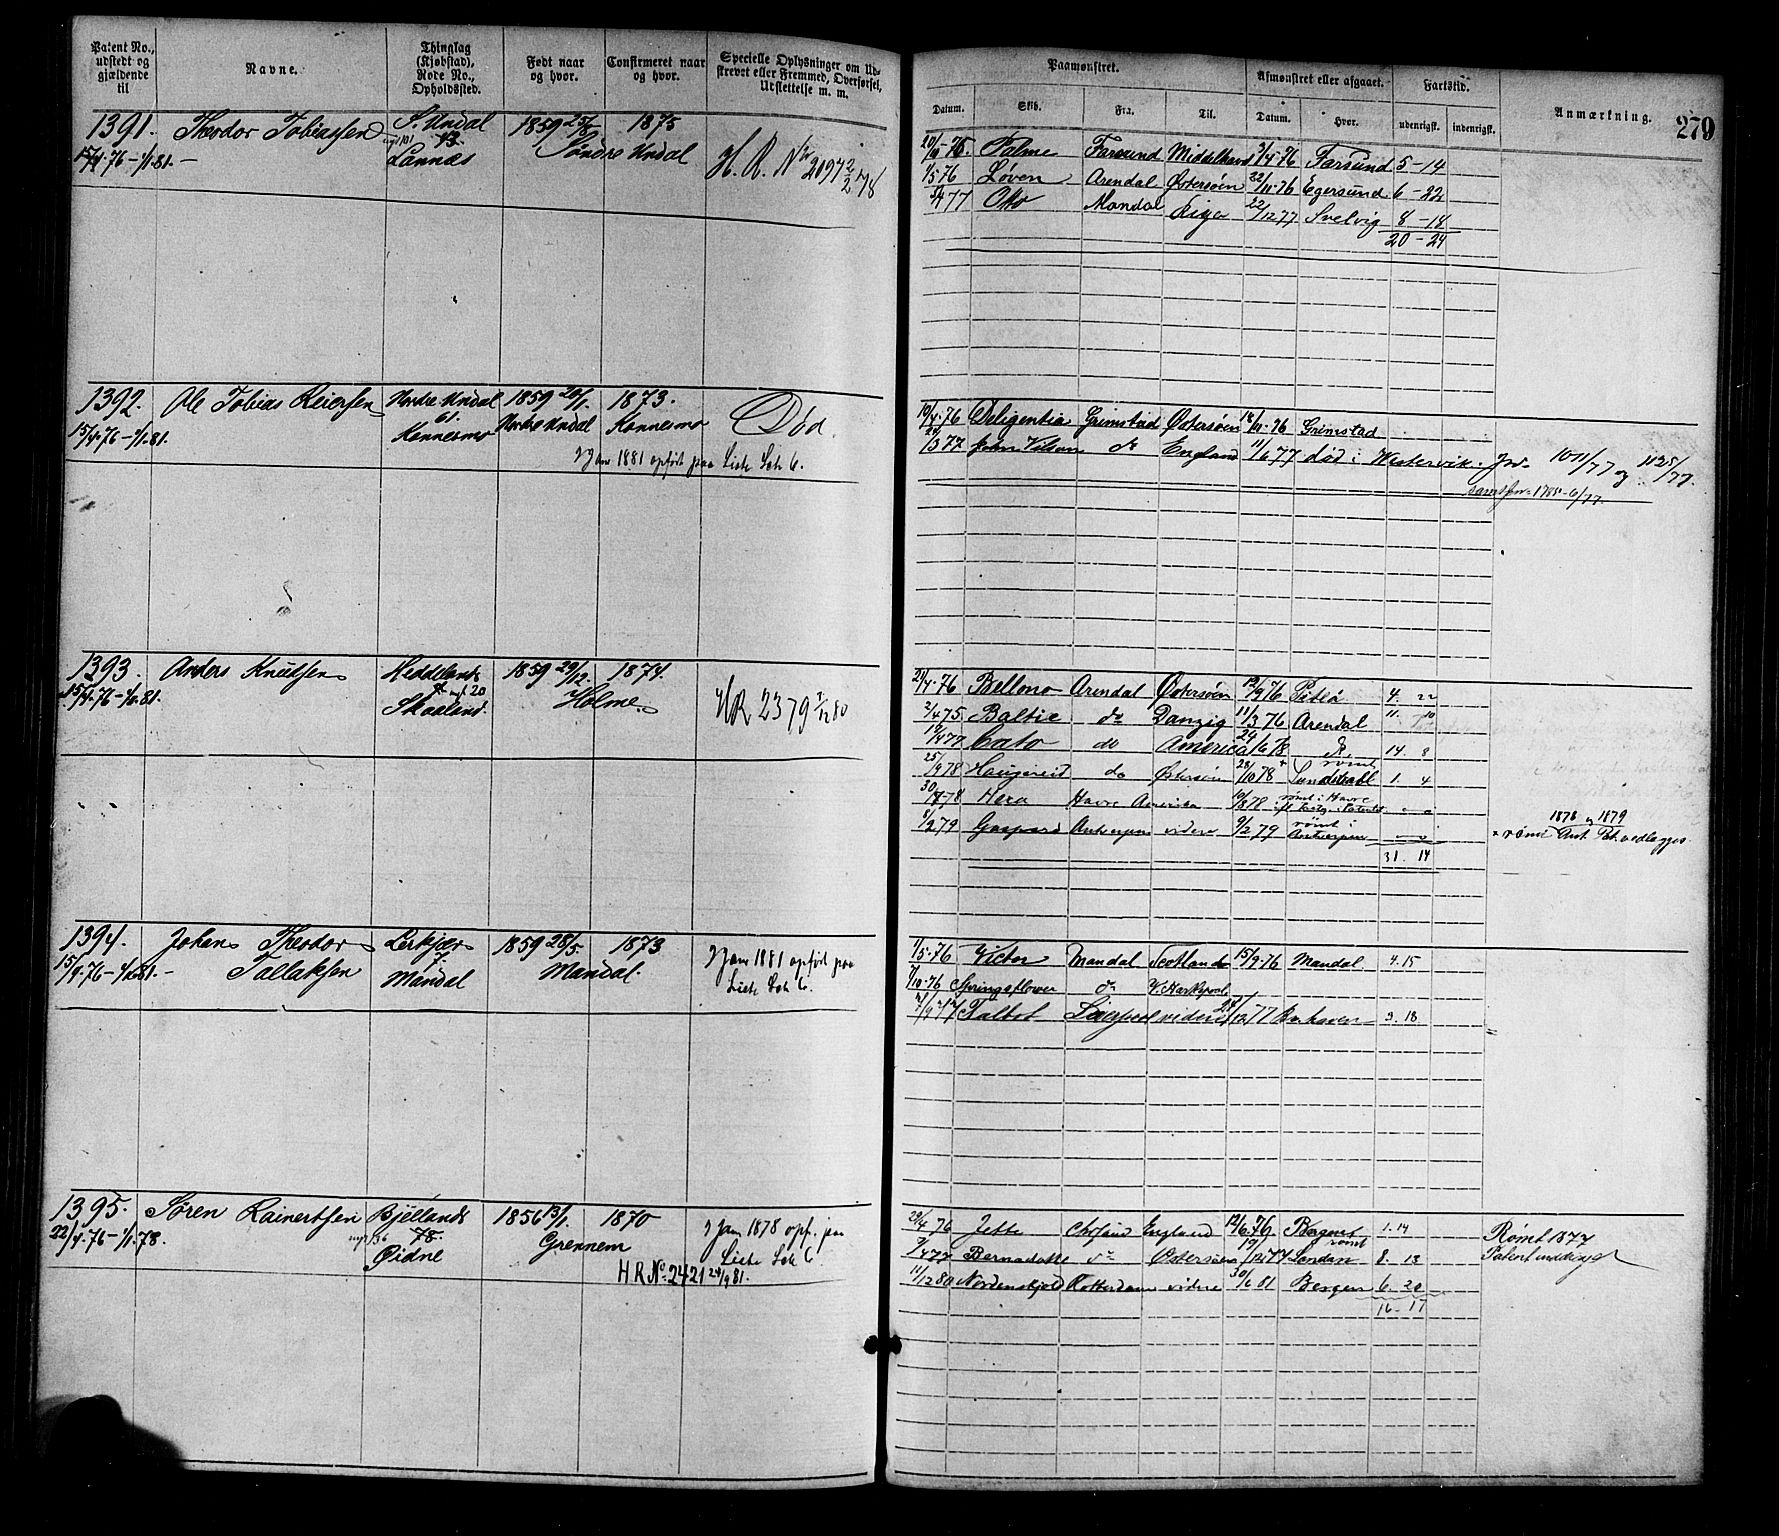 Patent No., udstedt og gjældende til
Navne.
Thinglag (Kjøbstad), Rode No., Opholdssted.
Født naar og hvor.
Confirmeret naar og hvor.
Specielle Oplysninger om Udskrevet eller Fremmed, Overførsel, Udslettelse m. m.
Paamønstret.
Afmønstret eller afgaaet.
Fartstid.
Anmærkning.
279
Datum. Skib. Fra. Til. Datum. Hvor. udenrigsk. indenrigsk.
1391. Theodor Tobiassen S. Undal 1859 25/8 1875
15/4.76-1/1.81.- Lannæs Søndre Undal H. R. No 2097 2/2 78
Palme Farsund Middelhavet 3/4.76 Farsund 5-14
1/5.76 Løven Arendal Østersøen 22/11.76 Egersund 6-22
Otto Mandal Riga 22/12 77 Svelvig 8-18
20-24
1392. Ole Tobias Reiersen Nordre Undal 1859 20/1. 1873.
61. Nordre Undal Konnesmo Død.
15/4.76-1/1.81. Konnesmo
Jan 1881 opført paa Liste Lit 6.
19/4.76 Deligentia Grimstad Østersøen 76 Grimstad
John Vilson do England 11/6 77 død i Westervik. Jno 1011/77 og 1125/77.
samt Jno 1785-6/77.
1393. Anders Knudsen Heddeland 1859 29/12. 1874.
20
15/4.76-1/1.81. Skaaland. Holme HR 2379 80
21/4.76 Bellona Arendal Østersøen 19/9 76 Piteå 4. 22
2/4 75. Baltic do Danzig 11/3 76 Arendal 11. 10
Cato do America 24/6 78 14. 8
25/9 78 do Østersøen 28/10 78 Sundsvall 1. 4
Hera Havre Amerika rømt i Havre
8/2 79 Antwerpen videre 9/2 79 rømt i Antwerpen
1878 og 1879
vedlægges.
31. 14
1394. Johan Theodor Lerkjær 1859 28/5. 1873
Tallaksen 7.
15/9.76-1/1.81.- Mandal Mandal. Jan 1881 opført paa Liste Lit 6.
1/5.76 Victor Mandal Scotland 15/9.76 Mandal. 4.15
Springflower do V. Hartlepool
Talbot Liverpool videre 12/77 Br.haven 3. 18
1395. Søren Rainertsen Bjelland 1856 13/1. 1870
78.
22/4.76-1/1.78. Eidne Grennem Jan 1878 opf. paa Liste Lit 6
H.R. No. 2421 24/9 81.
29/4 76 Jette Chrsand England 12/6.76 Bergen 1.14 Rømt 1877
Bernadotte do Østersøen 77 London rømt 8. 13 Patent inddraget
11/12 80 Nordenskjold Rotterdam videre 30/6 81 Bergen 6. 20
16-17